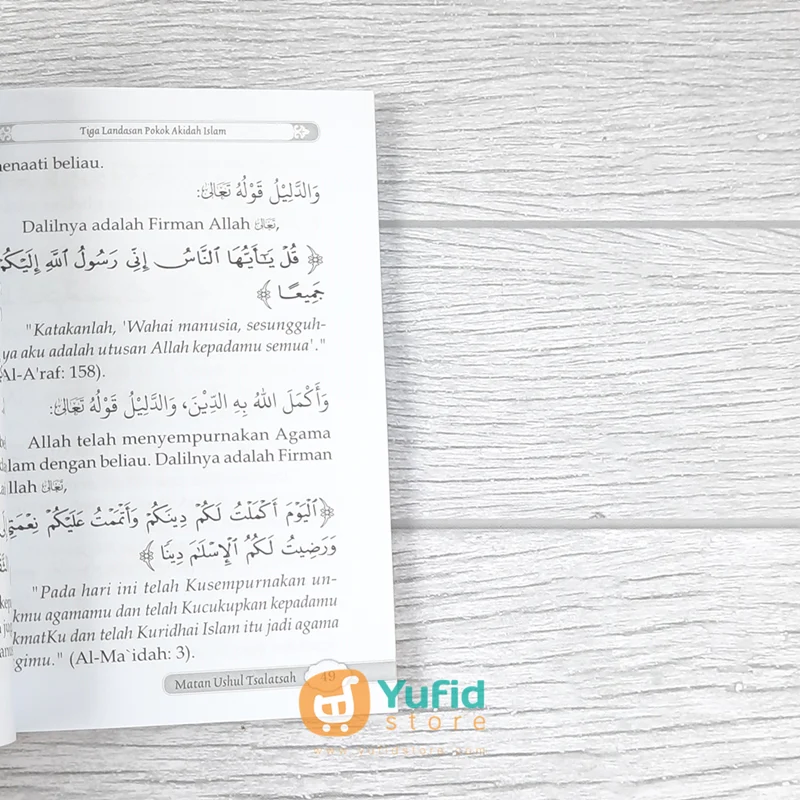 Tiga Landasan Pokok Akidah Islam
enaati beliau.
وَالدَّلِيْلُ قَوْلُهُ تَعَالَىٰ:
Dalilnya adalah Firman Allah تَعَالَىٰ,
﴿ قُلْ يَـٰٓأَيُّهَا ٱلنَّاسُ إِنِّى رَسُولُ ٱللَّهِ إِلَيْكُمْ
جَمِيعًا ﴾
"Katakanlah, 'Wahai manusia, sesungguh-
ya aku adalah utusan Allah kepadamu semua'."
Al-A'raf: 158).
وَأَكْمَلَ اللهُ بِهِ الدِّيْنَ، وَالدَّلِيْلُ قَوْلُهُ تَعَالَىٰ:
Allah telah menyempurnakan Agama
lam dengan beliau. Dalilnya adalah Firman
llah تَعَالَىٰ,
﴿ ٱلْيَوْمَ أَكْمَلْتُ لَكُمْ دِينَكُمْ وَأَتْمَمْتُ عَلَيْكُمْ نِعْمَتِى
وَرَضِيتُ لَكُمُ ٱلْإِسْلَـٰمَ دِينًا ﴾
"Pada hari ini telah Kusempurnakan un-
kmu agamamu dan telah Kucukupkan kepadamu
kmatKu dan telah Kuridhai Islam itu jadi agama
gimu." (Al-Ma`idah: 3).
Matan Ushul Tsalatsah 49
Yufid
store